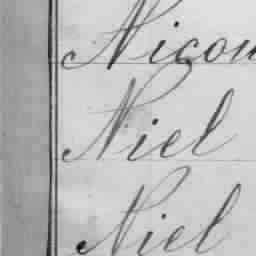 Nicou
Niel
Niel